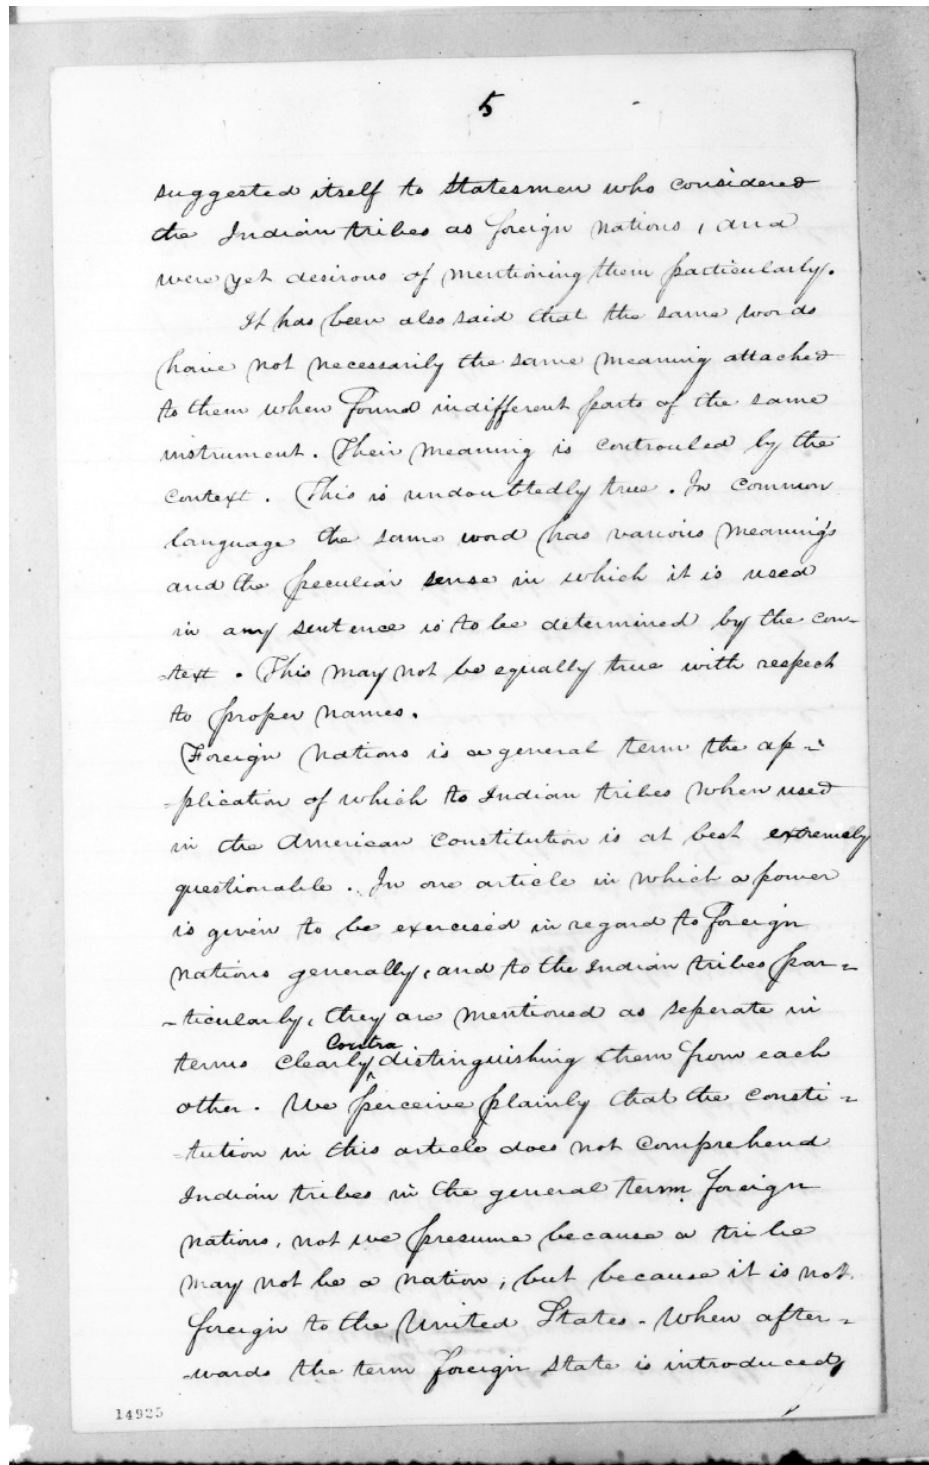 5
suggested itself to Statesmen who considered
the Indian tribes as foreign nations, and
were yet desirous of mentioning them particularly.
It has been also said that the same words
have not necessarily the same meaning attached
to them when found in different parts of the same
instrument. Their meaning is controuled by the
context. This is undoubtedly true. In common
language the same word has various meanings
and the peculiar sense in which it is used
in any sentence is to be determined by the con-
-text. This may not be equally true with respect
to proper names.
Foreign nations is a general term the ap-
-plication of which to Indian tribes when used
in the American Constitution is at best extremely
questionable. In one article in which a power
is given to be exercised in regard to foreign
nations generally, and to the Indian tribes par=
-ticularly, they are mentioned as seperate in
Contra
terms clearly distinguishing them from each
other. We perceive plainly that the consti=
=tution in this article does not comprehend
Indian tribes in the general term foreign
nations, not we presume because a tribe
may not be a nation, but because it is not
foreign to the United States. When after=
-wards the term foreign State is introduced,
14925